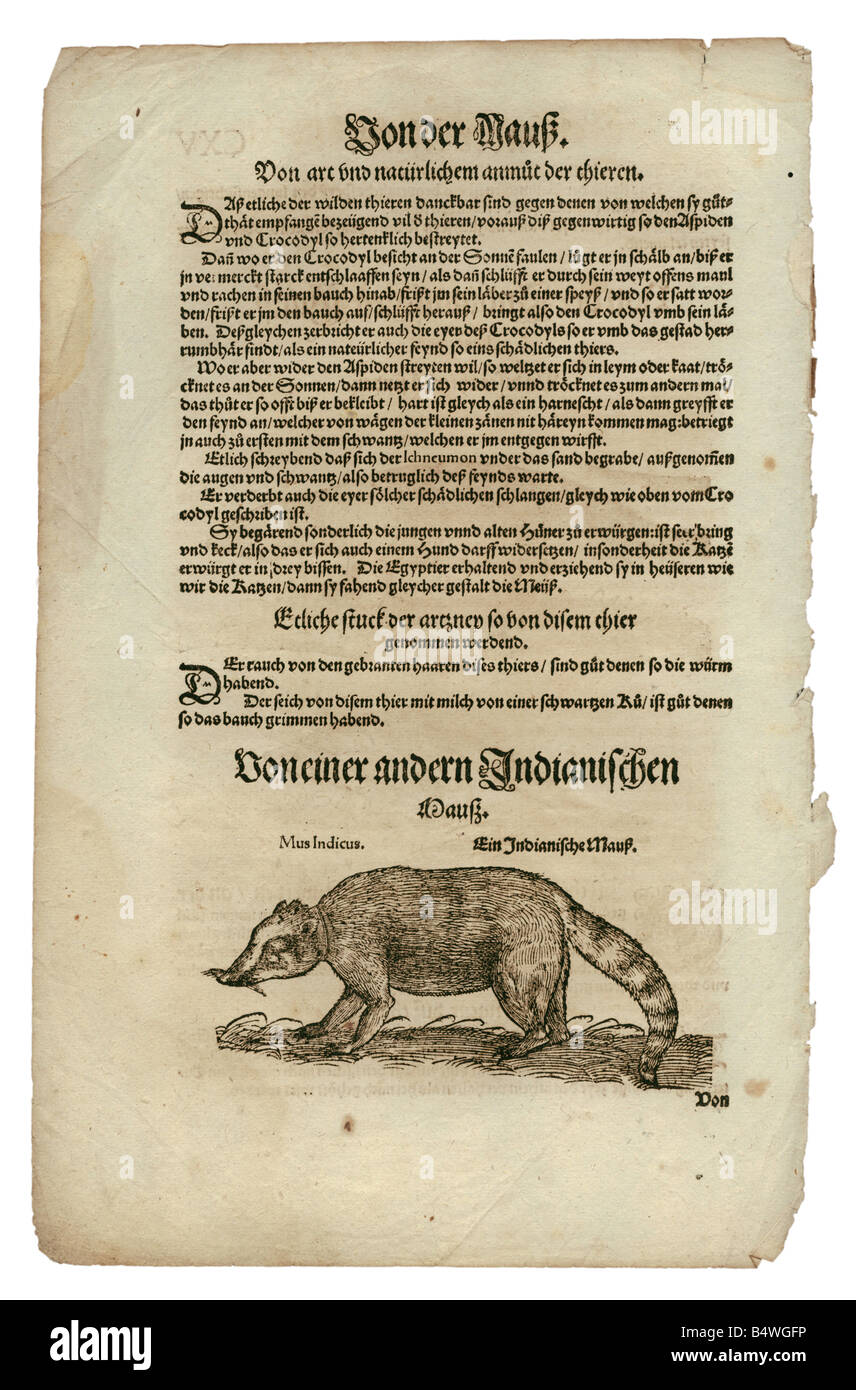 Von der Mauß.
Von art vnd natürlichem anmůt der thieren.
DAß etliche der wilden thieren danckbar sind gegen denen von welchen sy gůt-
thät empfangē bezeügend vil d thieren/vorauß diß gegenwirtig so den Aspiden
vnd Crocodyl so hertenklich bestreytet.
Dañ wo er den Crocodyl besicht an der Sonnē faulen/lůgt er jn schälb an/biß er
jn vermerckt starck entschlaaffen seyn/als dañ schlüfft er durch sein weyt offens maul
vnd rachen in seinen bauch hinab/frißt jm sein läber zů einer speyß/vnd so er satt wor-
den/frißt er jm den bauch auf/schlüfft herauß/bringt also den Crocodyl vmb sein lä-
ben. Deßgleychen zerbricht er auch die eyer deß Crocodyls so er vmb das gestad her-
rumbhär findt/als ein nateürlicher feynd so eins schädlichen thiers.
Wo er aber wider den Aspiden streyten wil/so weltzet er sich in leym oder kaat/trö-
cknet es an der Sonnen/dann netzt er sich wider/vnnd tröcknet es zum andern mal/
das thůt er so offt biß er bekleibt/hart ist gleych als ein harnescht/als dann greyfft er
den feynd an/welcher von wägen der kleinen zänen nit häreyn kommen mag: betriegt
jn auch zů ersten mit dem schwantz/welchen er jm entgegen wirfft.
Etlich schreybend daß sich der Ichneumon vnder das sand begrabe/außgenom̃en
die augen vnd schwantz/also betruglich deß feynds warte.
Er verderbt auch die eyer sölcher schädlichen schlangen/gleych wie oben vom Cro
codyl geschriben ist.
Sy begärend sonderlich die jungen vnnd alten Hüner zů erwürgen: ist bring
vnd keck/also das er sich auch einem Hund darff widersetzen/insonderheit die Katzē
erwürgt er in drey bissen. Die Egyptier erhaltend vnd erziehend sy in heüseren wie
wir die Katzen/dann sy fahend gleycher gestalt die Meüß.
Etliche stuck der artzney so von disem thier
genommen werdend.
DEr rauch von den gebranten haaren dises thiers/sind gůt denen so die würm
habend.
Der seich von disem thier mit milch von einer schwartzen Ků/ist gůt denen
so das bauch grimmen habend.
Von einer andern Indianischen
Mauß.
Mus Indicus. Ein Indianische Mauß.
Von
alamy
Image ID: B4WGFP
www.alamy.com